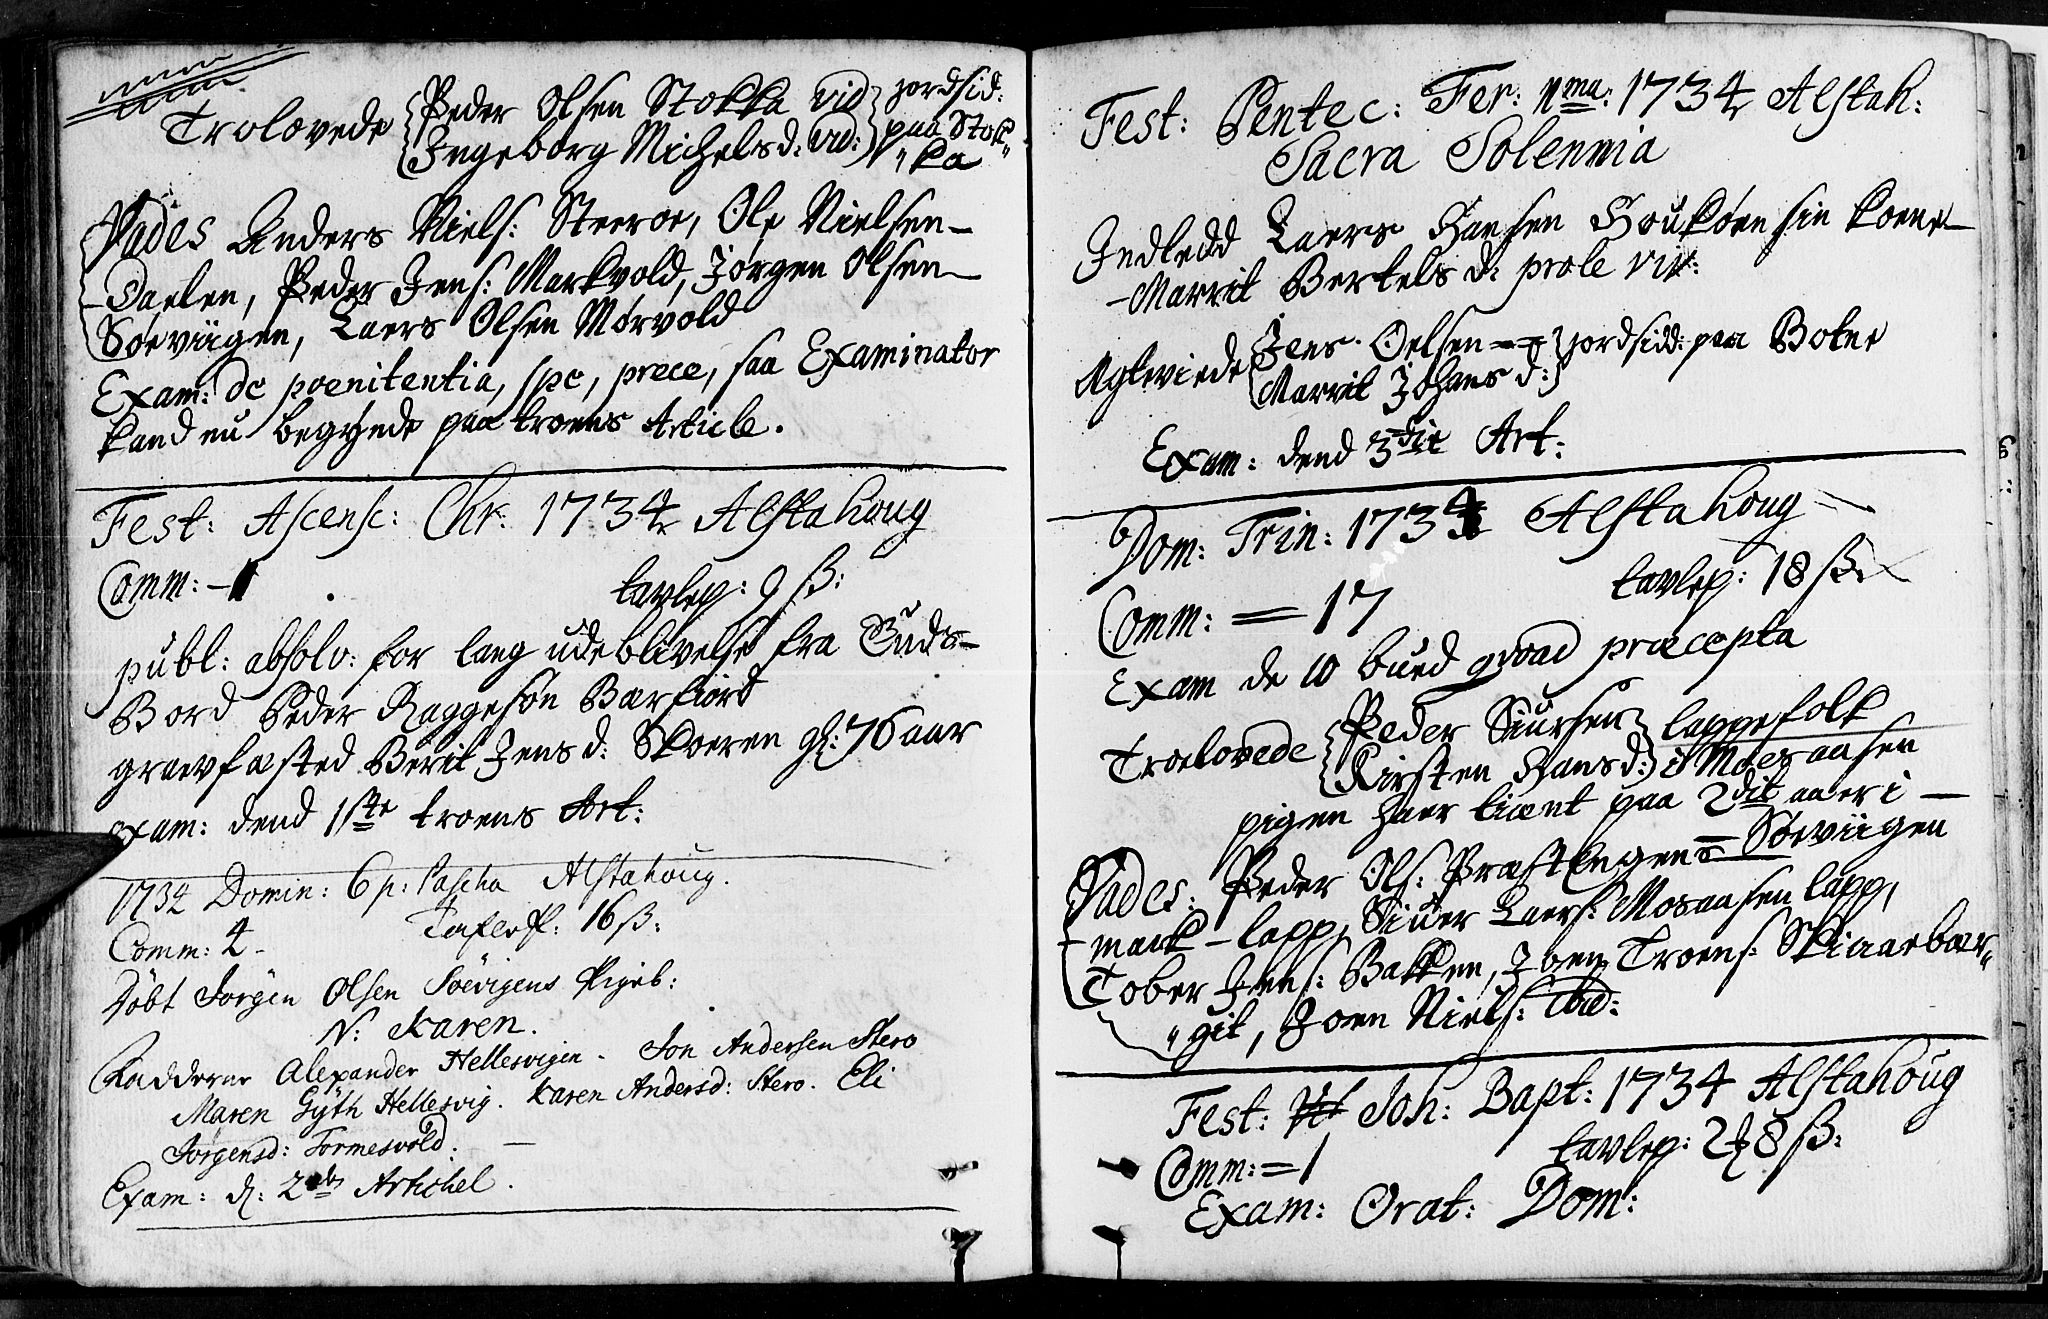 Trolovede Peder Olsen Stokka vid jordsid:
Ingeborg Michelsd: vid: paa Stok„
„ka
Vades Anders Niels: Steeroe, Ole Nielsen
Daelen, Peder Jens: Markvold, Jørgen Olsen
Søeviigen, Laers Olsen Mørvold
Exam: de poenitentia, spe, prece, saa Examinator
kand nu begÿnde paa troens Article.
Fest: Ascensc: Chr: 1734 Alstahoug
Comm: – 1 tavlep: 9 ß:
publ: absolv: for lang udeblivelse fra Guds
Bord Peder Raggesøn Barfiord
graevfæsted Berit Jens d: Skoeren gl: 76 aar
exam: dend 1ste troens Art:
1734 Domin: 6 p: Pascha Alstahoug.
Comm: 4 – 16 ß:
Døbt Jørgen Olsen Søevigens Pigeb:
N: Karen.
Fadderne Alexander Hellesvigen. Jon Andersen Stero
Maren Gÿth Hellesvig. Karen Andersd: Stero. Eli
Jørgensd: Tormesvold. —
Exam: d: 2den Artichel.
Fest: Pentec: Fer: 1ma: 1734 Alstah:
Sacra Solennia
Indledd Laers Hansen Houkøen sin koene
Marrit Bertels d: prole viv:
Agteviede Jens Oelsen jordsidd: paa Botne
Marrit Johans d:
Exam: dend 3die Art:
Dom: Trin: 1734 Alstahoug
Comm: = 17 tavlep: 18 ß:
Exam de 10 bued qvoad præcepta
Troelovede Peder Siursen lappefolk
Kirsten Hansd: i Mosaasen
pigen haer tient paa 2det aaer i —
Søeviigen
Vades: Peder Ols: PræstEngens
mark – lapp, Siuer Laers: Mosaasen lapp,
Tober Jens: Bakken, Joen Troens: Skiaarbær„
„git, Joen Niels: ibid:
Fest: Joh: Bapt: 1734 Alstahoug
Comm: = 1 tavlep: 2 ₰ 8 ß:
Exam: Orat: Dom: